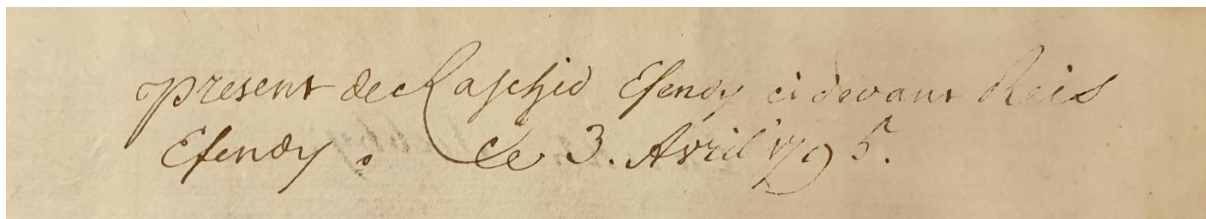 present de Raschid Efendy ci devant Reis
Efendy. Ce 3. Avril 1795.